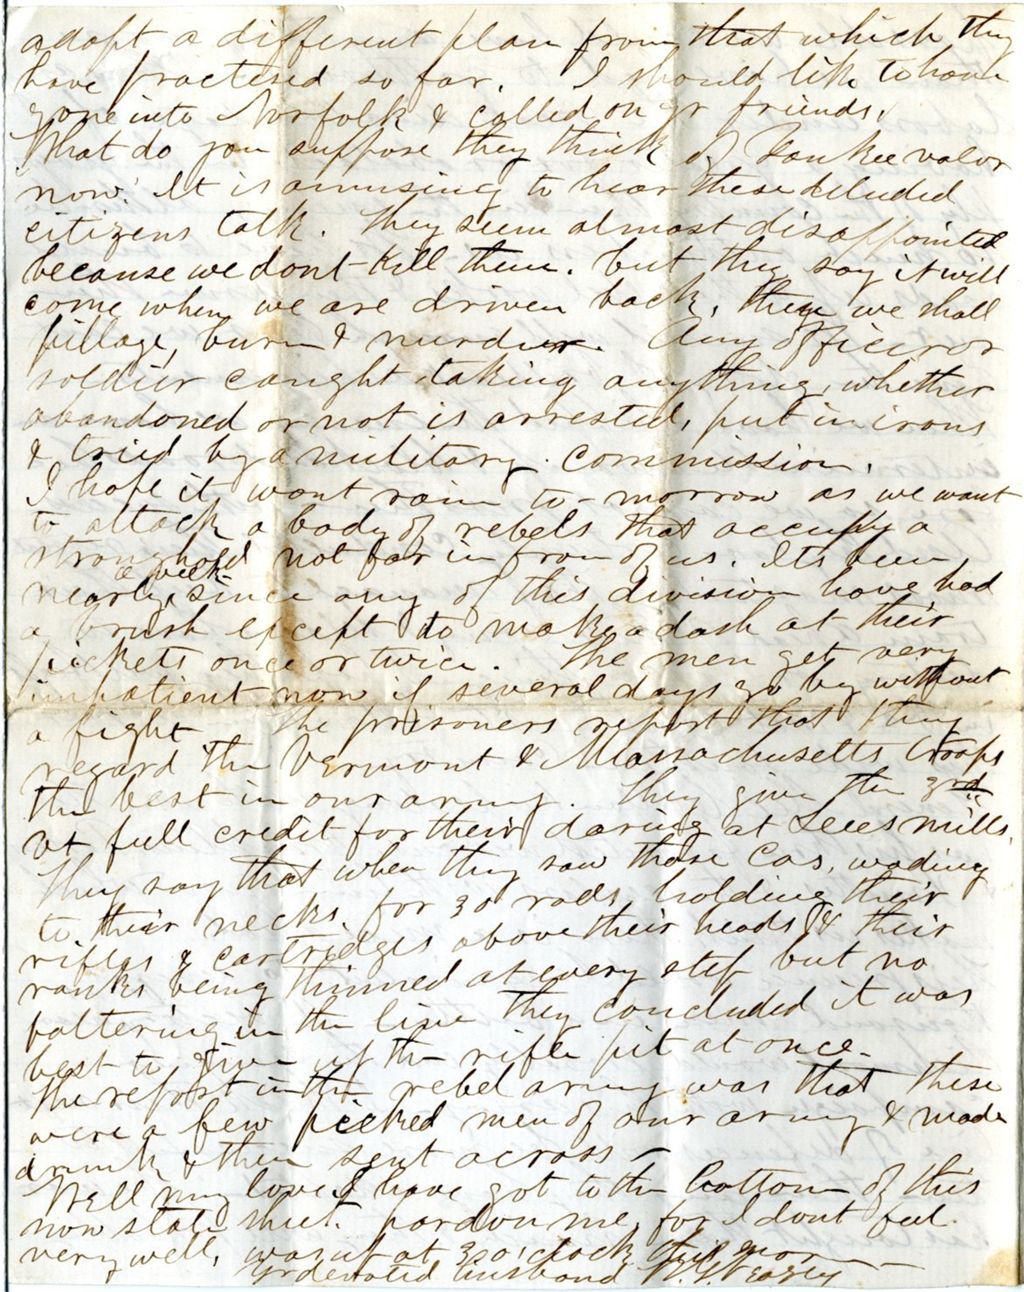 adopt a different plan from that which they
have practered so far. I should like to have
gone into Norfolk & called on yr friends.
What do you suppose they think of Yankee valor
now. It is amusing to hear these deluded
citizens talk. They seem almost disappointed
because we dont kill them. but they say it will
come when we are driven back, then we shall
pillage, burn & murder. Any officer or
soldier caught taking anything, whether
abandoned or not is arrested, put in irons
& tried by a military commission.
I hope it wont rain to-morrow as we want
to attack a body of rebels that occupy a
stronghold not far in fron of us. Its been
nearly a week since any of this division have had
a brush except to make a dash at their
pickets once or twice. The men get very
impatient now if several days go by without
a fight The prisoners report that they
regard the Vermont & Massachusetts troops
the best in our army. They give the 3rd
Vt full credit for their daring at Lees mills.
They say that when they saw those Cos. wading
to their necks for 30 rods, holding their
rifles & cartridges above their heads & their
ranks being thinned at every step but no
faltering in the line they concluded it was
best to give up the rifle pit at once.
The report in the rebel army was that these
were a few picked men of our army & made
drunk & then sent across –
Well my love I have got to the bottom of this
now state sheet. pardon me, for I dont feel
very well, was up at 3 o'clock this mor–
Yr devoted husband